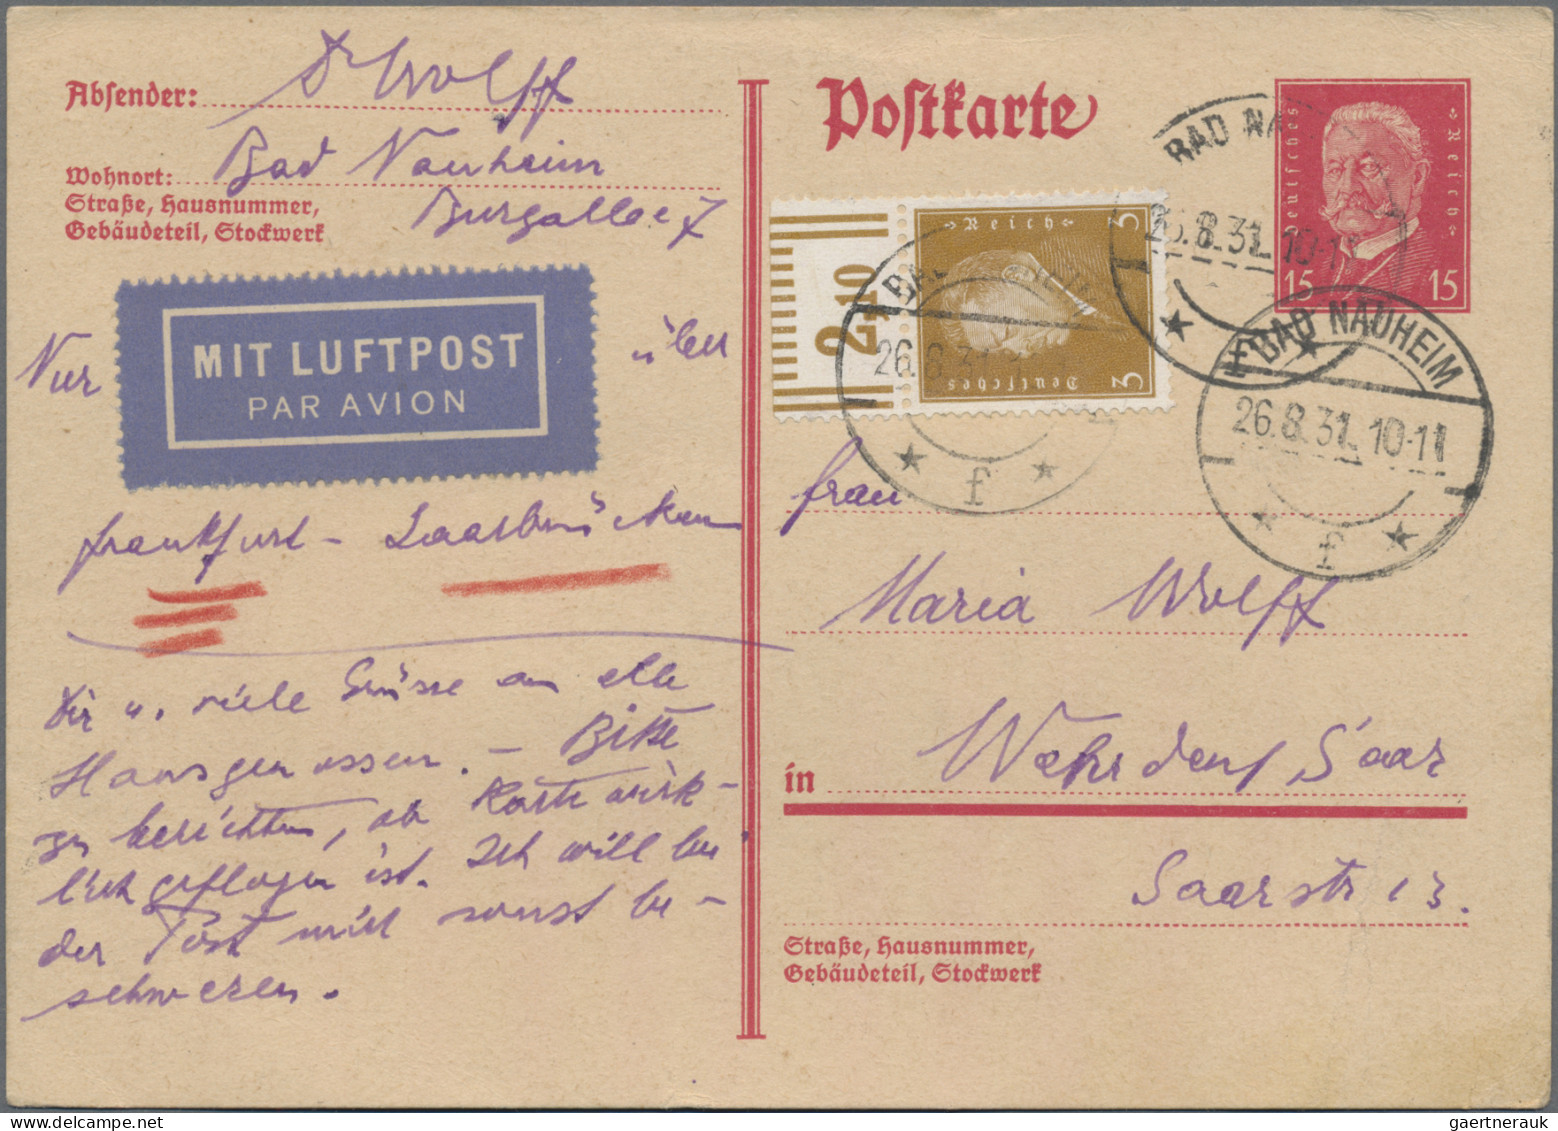 Absender: Dr Wolff
Wohnort: Bad Nauheim
Straße, Hausnummer, Burgallee 7
Gebäudeteil, Stockwerk
MIT LUFTPOST
PAR AVION
Nur über
Frankfurt - Saarbrücken
Dir u. viele Grüsse an alle
Hausgenossen. - Bitte
zu berichten, ob Karte wirk-
lich geflogen ist. Ich will bei
der Post mich sonst be-
schweren.
Postkarte
Deutsches Reich
15 15
Deutsches Reich
3 3
2.10
BAD NAUHEIM
26.8.31. 10-11
f
BAD NA
26.8.31. 10-1
BAD NAUHEIM
26.8.31
f
Frau
Maria Wolff
in Wehrden/Saar
Saarstr 13.
Straße, Hausnummer,
Gebäudeteil, Stockwerk
gaertnerauk